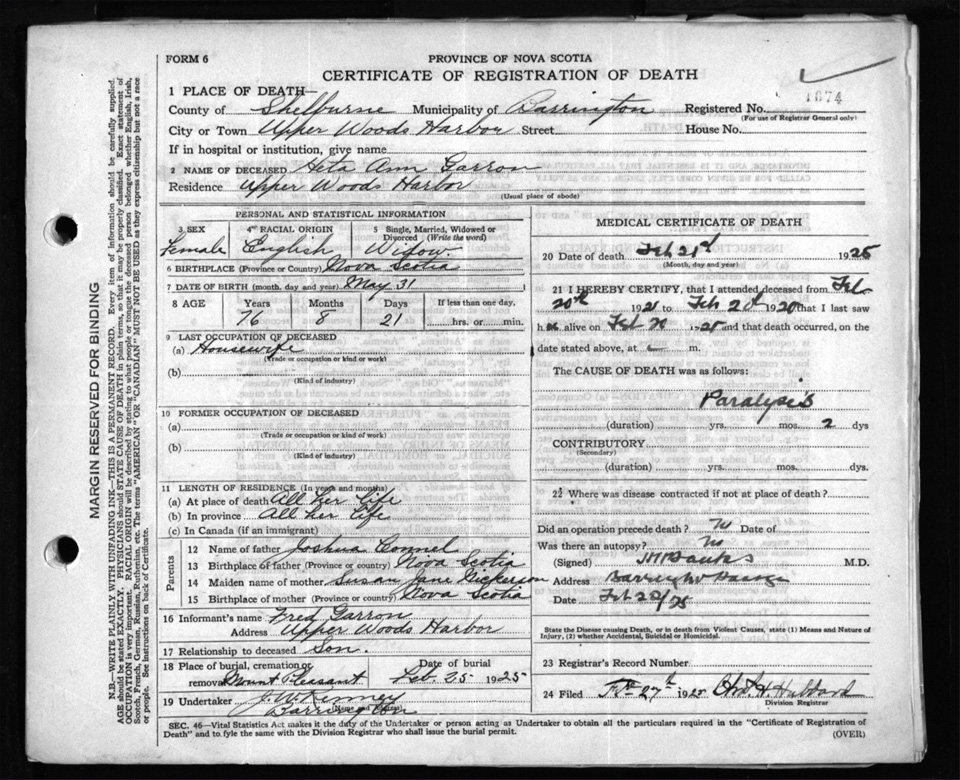 FORM 6
PROVINCE OF NOVA SCOTIA
CERTIFICATE OF REGISTRATION OF DEATH
1874
1 PLACE OF DEATH—
County of Shelburne Municipality of Barrington Registered No.
(For use of Registrar General only)
City or Town Upper Woods Harbor Street House No.
If in hospital or institution, give name
2 NAME OF DECEASED Ann Garron
Residence Upper Woods Harbor
(Usual place of abode)
PERSONAL AND STATISTICAL INFORMATION
3 SEX 4 RACIAL ORIGIN 5 Single, Married, Widowed or Divorced (Write the word)
Female English Widow
6 BIRTHPLACE (Province or Country) Nova Scotia
7 DATE OF BIRTH (month, day and year) May 31
8 AGE Years Months Days If less than one day,
76 8 21 hrs. or min.
9 LAST OCCUPATION OF DECEASED
(a) Housewife
(Trade or occupation or kind or work)
(b)
(Kind of industry)
10 FORMER OCCUPATION OF DECEASED
(a)
(Trade or occupation or kind of work)
(b)
(Kind of industry)
11 LENGTH OF RESIDENCE (In years and months)
(a) At place of death All her life
(b) In province All her life
(c) In Canada (if an immigrant)
Parents
12 Name of father Joshua Connel
13 Birthplace of father (Province or country) Nova Scotia
14 Maiden name of mother Susan Jane Nickerson
15 Birthplace of mother (Province or country) Nova Scotia
16 Informant's name Fred Garron
Address Upper Woods Harbor
17 Relationship to deceased Son.
18 Place of burial, cremation or removal Mount Pleasant Date of burial Feb. 25 1925
19 Undertaker J. McKinney
Barrington
MEDICAL CERTIFICATE OF DEATH
20 Date of death Feb 21st 1925
(Month, day and year)
21 I HEREBY CERTIFY, that I attended deceased from Feb
20th 192 to Feb 192 that I last saw
h alive on Feb and that death occurred, on the
date stated above, at m.
The CAUSE OF DEATH was as follows:
Paralysis
(duration) yrs. mos. 2 dys
CONTRIBUTORY
(Secondary)
(duration) yrs. mos. dys
22 Where was disease contracted if not at place of death?
Did an operation precede death? No Date of
Was there an autopsy? No
(Signed) Banks M.D.
Address Barrington Passage
Date Feb
State the Disease causing Death, or in death from Violent Causes, state (1) Means and Nature of
Injury, (2) whether Accidental, Suicidal or Homicidal.
23 Registrar's Record Number
24 Filed Feb 27th 1925 H Hubbard
Division Registrar
SEC. 46—Vital Statistics Act makes it the duty of the Undertaker or person acting as Undertaker to obtain all the particulars required in the "Certificate of Registration of
Death" and to fyle the same with the Division Registrar who shall issue the burial permit.
(OVER)
MARGIN RESERVED FOR BINDING
N.B.—WRITE PLAINLY WITH UNFADING INK—THIS IS A PERMANENT RECORD. Every item of information should be carefully supplied.
AGE should be stated EXACTLY. PHYSICIANS should STATE CAUSE OF DEATH in plain terms, so that it may be properly classified. Exact statement of
OCCUPATION is very important. RACIAL ORIGIN will be described by stating to what people or tongue the deceased person belonged whether English, Irish,
Scotch, French, German, Russian, Ruthenian, etc. The terms "AMERICAN" OR "CANADIAN" MUST NOT BE USED as they express citizenship but not a race
or people. See instructions on back of Certificate.